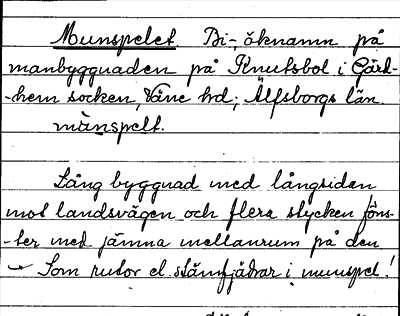 Munspelet Bi-, öknamn på
manbyggnaden på Knutsbol i Gärd-
-hem socken, Väne hd; Älfsborgs län.
mànspelt.
Lång byggnad med långsidan
mot landsvägen och flera stycken föns-
-ter med jämna mellanrum på den
Som rutor el. stämfjädrar i munspel!